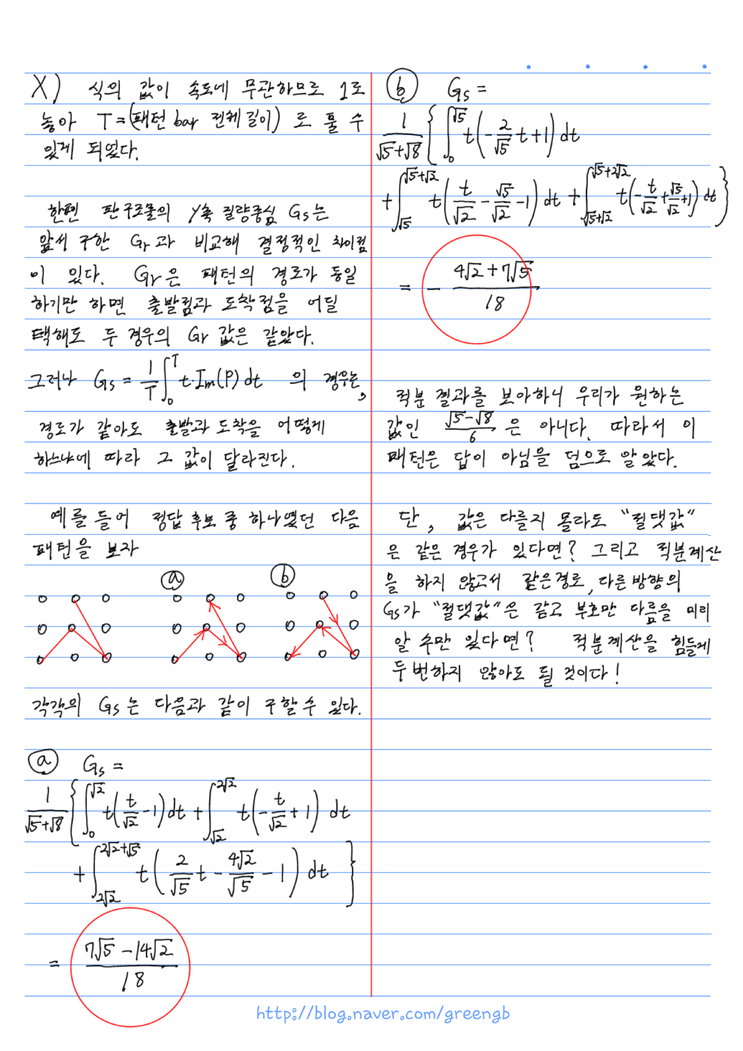 X) 식의 값이 속도에 무관하므로 1로
놓아 T=(패턴 bar 전체길이)로 풀 수
있게 되었다.
한편 판구조물의 y축 질량중심 Gs는
앞서 구한 Gr과 비교해 결정적인 차이점
이 있다. Gr은 패턴의 경로가 동일
하기만 하면 출발점과 도착점을 어딜
택해도 두 경우의 Gr 값은 같았다.
그러나 Gs = 1/T ∫₀ᵀ t·Im(P) dt 의 경우는,
경로가 같아도 출발과 도착을 어떻게
하느냐에 따라 그 값이 달라진다.
예를 들어 정답 후보 중 하나였던 다음
패턴을 보자
ⓐ ⓑ
각각의 Gs는 다음과 같이 구할 수 있다.
ⓐ Gs =
1/(√5+√8) { ∫₀^√2 t(t/√2 - 1) dt + ∫_√2^2√2 t(-t/√2 + 1) dt
+ ∫_2√2^(2√2+√5) t(2/√5 t - 4√2/√5 - 1) dt }
= (7√5 - 14√2)/18
ⓑ Gs =
1/(√5+√8) { ∫₀^√5 t(-2/√5 t + 1) dt
+ ∫_√5^(√5+√2) t(t/√2 - √5/√2 - 1) dt + ∫_(√5+√2)^(√5+2√2) t(-t/√2 + √5/√2 + 1) dt }
= - (4√2 + 7√5)/18
적분 결과를 보아하니 우리가 원하는
값인 (√5-√8)/6 은 아니다. 따라서 이
패턴은 답이 아님을 덤으로 알았다.
단, 값은 다를지 몰라도 "절댓값"
은 같은 경우가 있다면? 그리고 적분계산
을 하지 않고서 같은경로, 다른 방향의
Gs가 "절댓값"은 같고 부호만 다름을 미리
알 수만 있다면? 적분계산을 힘들게
두번하지 않아도 될 것이다!
http://blog.naver.com/greengb